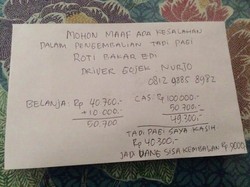 MOHON MAAF ADA KESALAHAN
DALAM PENGEMBALIAN TADI DARI
ROTI BAKAR EDI
DRIVER GOJEK NURJO
0812 8885 8982
BELANJA: Rp 40.700.-
+ 10.000.-
50.700
CAS: Rp 100.000-
50.700.-
49.300.-
TADI DARI SAYA KASIH
Rp 40.300.-
JADI UANG SISA KEMBALIAN Rp 9000